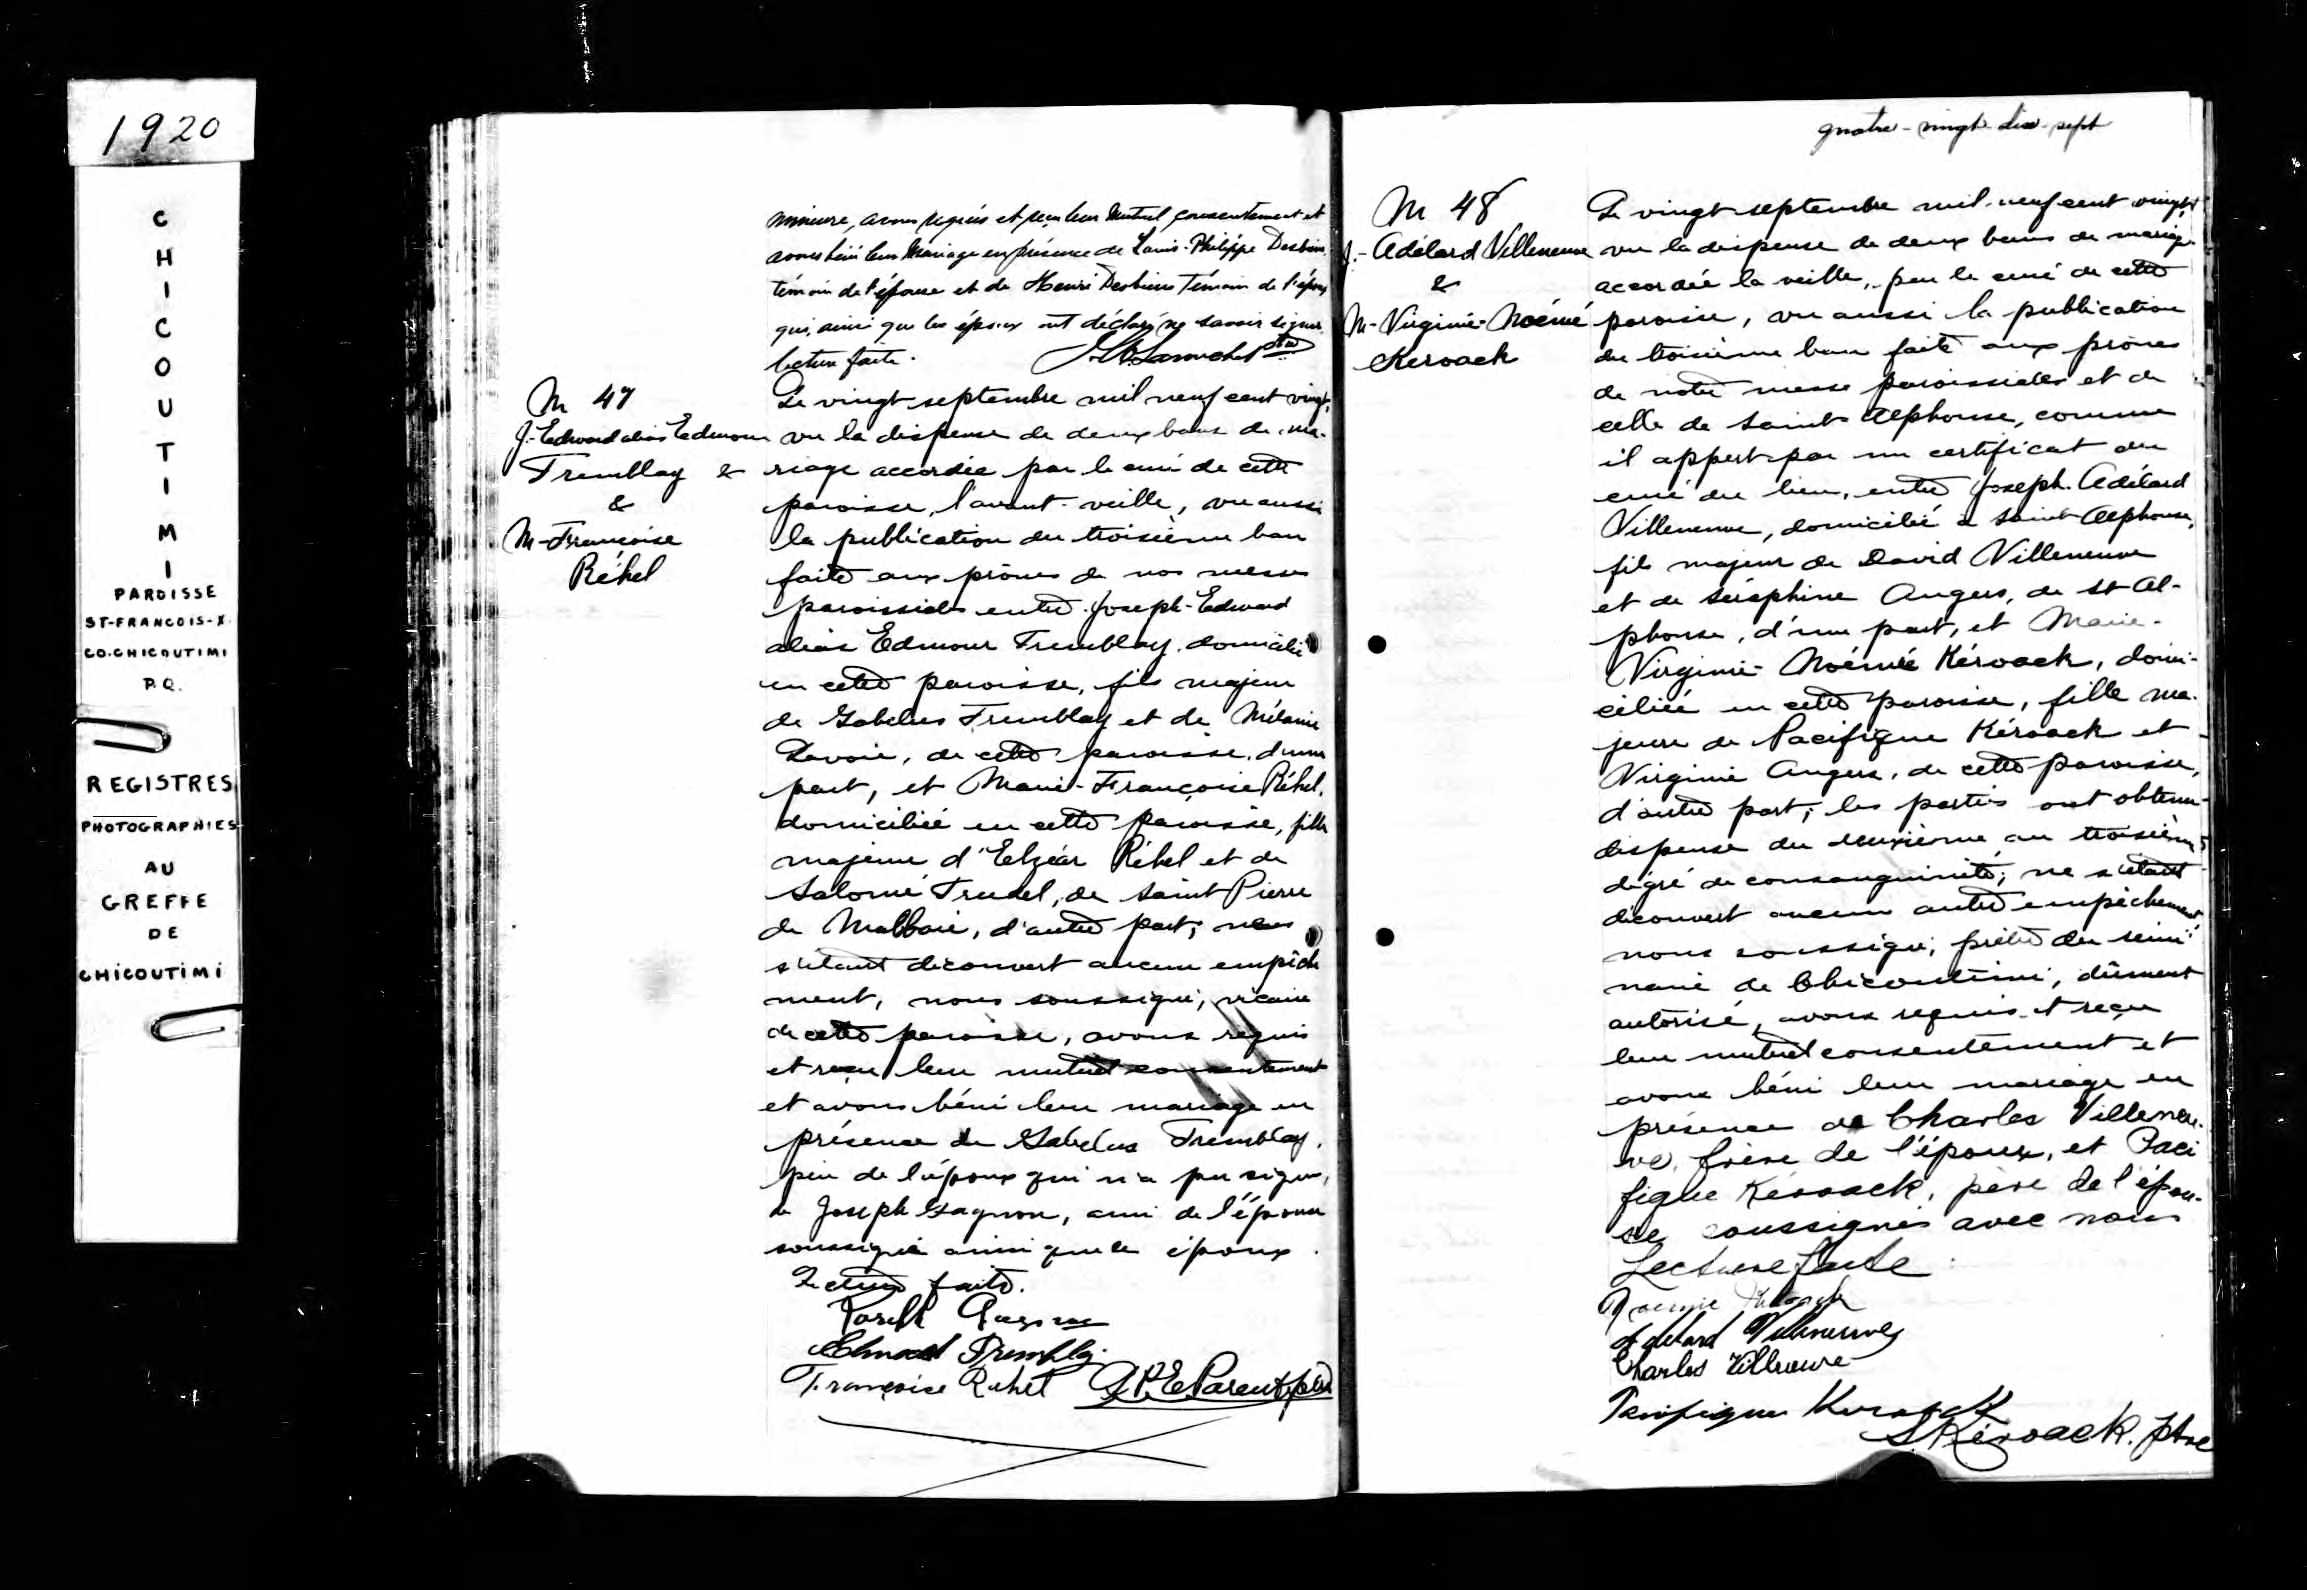 1920
C
H
I
C
O
U
T
I
M
I
PAROISSE
ST-FRANCOIS-X.
CO.CHICOUTIMI
P.Q.
REGISTRES
PHOTOGRAPHIES
AU
GREFFE
DE
CHICOUTIMI
mineure, avons requis et reçu leur mutuel consentement et
avons béni leur Mariage en présence de Louis-Philippe Desbiens
témoin de l'épouse et de Henri Desbiens témoin de l'époux
qui, ainsi que les époux ont déclaré ne savoir signer.
lecture faite.
M 47
J.-Edward alias Edmour
Tremblay &
&
M-Françoise
Réhel
Le vingt septembre mil neuf cent vingt,
vu la dispense de deux bans de ma-
riage accordée par le curé de cette
paroisse, l'avant-veille, vu aussi
la publication du troisième ban
faite aux prônes de nos messes
paroissiales entre Joseph-Edward
alias Edmour Tremblay, domicilié
en cette paroisse, fils majeur
de Gabelus Tremblay et de Mélanie
Lavoie, de cette paroisse, d'une
part, et Marie-Françoise Réhel,
domiciliée en cette paroisse, fille
majeure d'Elzéar Réhel et de
Salomé Trudel, de Saint Pierre
de Malbaie, d'autre part; ne
s'étant découvert aucun empêche
ment, nous soussigné, vicaire
de cette paroisse, avons requis
et reçu leur mutuel consentement
et avons béni leur mariage en
présence de Gabelus Tremblay,
père de l'époux qui n'a pu signer,
de Joseph Gagnon, ami de l'époux
soussigné ainsi que les époux.
Lecture faite.
Joseph Gagnon
Edmond Tremblay
Françoise Rehel J.E.Parent ptre
quatre-vingt-dix-sept
M 48
J.-Adélard Villeneuve
&
M-Virginie-Noémie
Keroack
Le vingt septembre mil neuf cent vingt
vu la dispense de deux bans de mariage
accordée la veille, par le curé de cette
paroisse, vu aussi la publication
du troisième ban faite aux prônes
de notre messe paroissiales et de
celle de Saint Alphonse, comme
il appert par un certificat du
curé du lieu, entre Joseph-Adélard
Villeneuve, domicilié à Saint Alphonse,
fils majeur de David Villeneuve
et de Séraphine Angers, de St Al-
phonse, d'une part, et Marie-
Virginie-Noémie Kéroack, domi-
ciliée en cette paroisse, fille ma-
jeure de Pacifique Kéroack et
Virginie Angers, de cette paroisse,
d'autre part; les parties ont obtenu
dispense du deuxième au troisième
degré de consanguinité; ne s'étant
découvert aucun autre empêchement,
nous soussigné, prêtre du sémi-
naire de Chicoutimi, dûment
autorisé, avons requis et reçu
leur mutuel consentement et
avons béni leur mariage en
présence de Charles Villeneu-
ve, frère de l'époux, et Paci
fique Kéroack, père de l'épou-
se soussignés avec nous
Lecture faite
Noemie Kéroack
Adelard Villeneuve
Charles Villeneuve
Pacifique Keroack
S. Kéroack. ptre